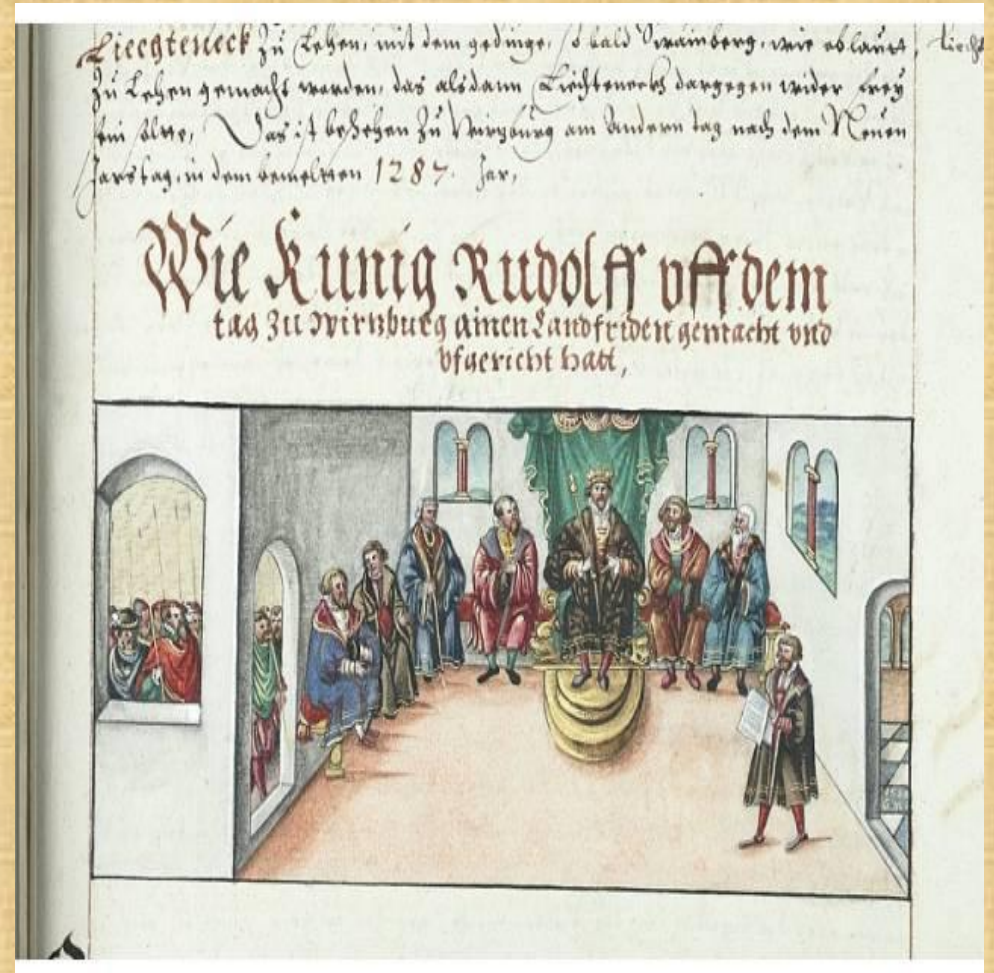 Liechteneck zu Lehen, mit dem gedinge, so bald Swainberg, wie ob laut,
zu Lehen gemacht worden, das alsdann Liechteneck dargegen wider frey
sein solte, Das ist beschehen zu Wirtzburg am Andern tag nach dem Neuen
Jarstag, in dem bemelten 1287. Jar,
Wie Kunig Rudolff vff dem
tag zu Wirtzburg ainen Landfriden gemacht vnd
vfgericht hatt,